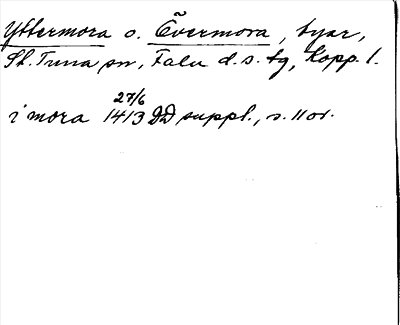 Yttermora o. Övermora, byar,
St. Tuna sn, Falu d. s. tg, Kopp. l.
27/6
i mora 1413 DD suppl., s. 110.